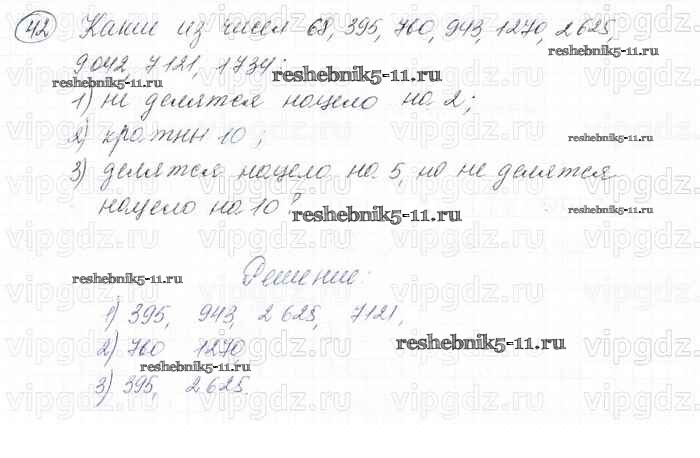 42 Какие из чисел 68, 395, 760, 943, 1270, 2625,
9042, 7121, 1734:
1) не делятся нацело на 2;
2) кратны 10;
3) делятся нацело на 5, но не делятся
нацело на 10?
Решение:
1) 395, 943, 2625, 7121,
2) 760 1270
3) 395, 2625.
reshebnik5-11.ru
reshebnik5-11.ru
reshebnik5-11.ru
reshebnik5-11.ru
reshebnik5-11.ru
reshebnik5-11.ru
reshebnik5-11.ru
reshebnik5-11.ru
reshebnik5-11.ru
vipgdz.ru